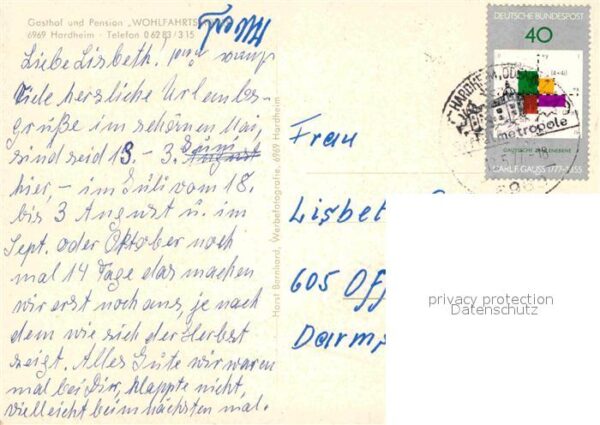 Gasthof und Pension „WOHLFAHRTSMÜHLE"
6969 Hardheim - Telefon 0 62 83 / 315
Liebe Lisbeth!
Viele herzliche Urlaubs-
grüße im schönen Mai,
sind seid 13. - 3. Juni August
hier, - im Juli vom 18.
bis 3 August u. im
Sept. oder Oktober noch
mal 14 Tage das machen
wir erst noch aus, je nach
dem wie sich der Herbst
zeigt. Alles Gute wir waren
mal bei Dir, klappte nicht,
vielleicht beim nächsten mal.
Horst Barnhard, Werbefotografie, 6969 Hardheim
DEUTSCHE BUNDESPOST
40
HARDHEIM, ODENW
metropole
GAUSSSCHE ZAHLENEBENE
CARL F. GAUSS 1777-1855
Frau
Lisbet
605 Off
Darmst
privacy protection
Datenschutz